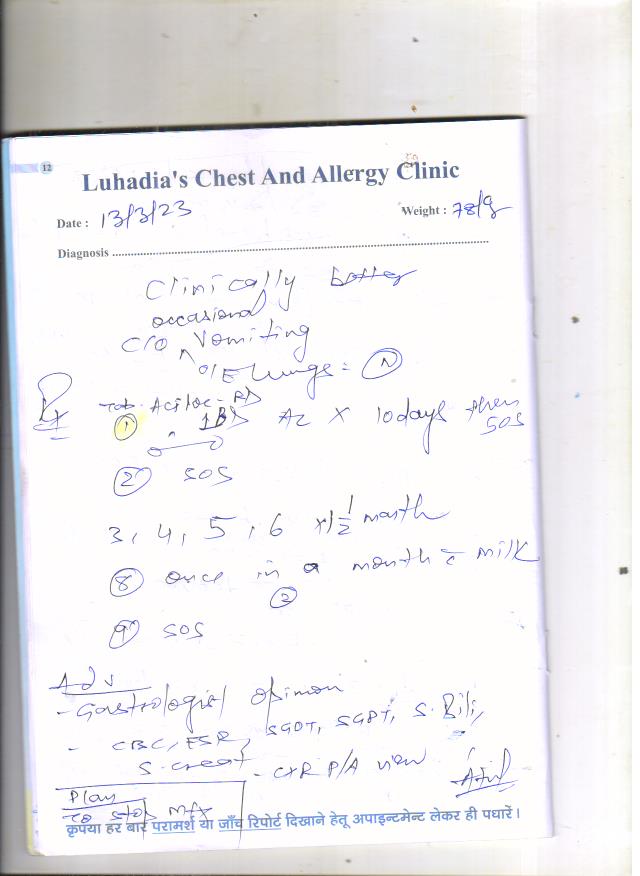 12
Luhadia's Chest And Allergy Clinic
Date : 13/3/23 Weight : 78/g
Diagnosis
Clinically better
occasional
C/O ^ Vomiting
O/E Lungs = (N)
Rx Tab. Aciloc-RD
① 1BD AC x 10days then SOS
② SOS
3, 4, 5, 6 x 1 1/2 month
⑧ once in a month c milk
②
⑨ SOS
Adv
- Gastrologist opinion
- CBC, ESR, SGOT, SGPT, S. Bili,
S. creat - CXR P/A view
Plan
to stop Mfx
कृपया हर बार परामर्श या जाँच रिपोर्ट दिखाने हेतू अपाइन्टमेन्ट लेकर ही पधारें।